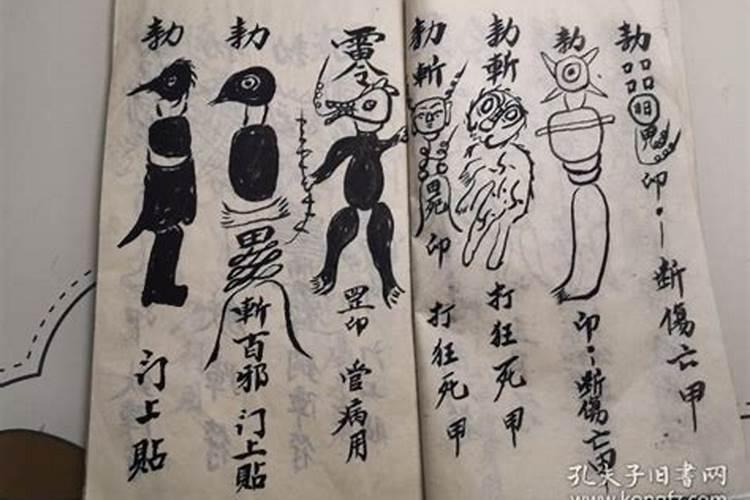 勅 鬼 印 断傷亡甲
勅 印 断傷亡甲
勅斬 打狂死甲
勅斬 印 打狂死甲
雷令 罡印 當病用
勅 斬百邪门上貼
勅 门上貼
孔夫子旧书网